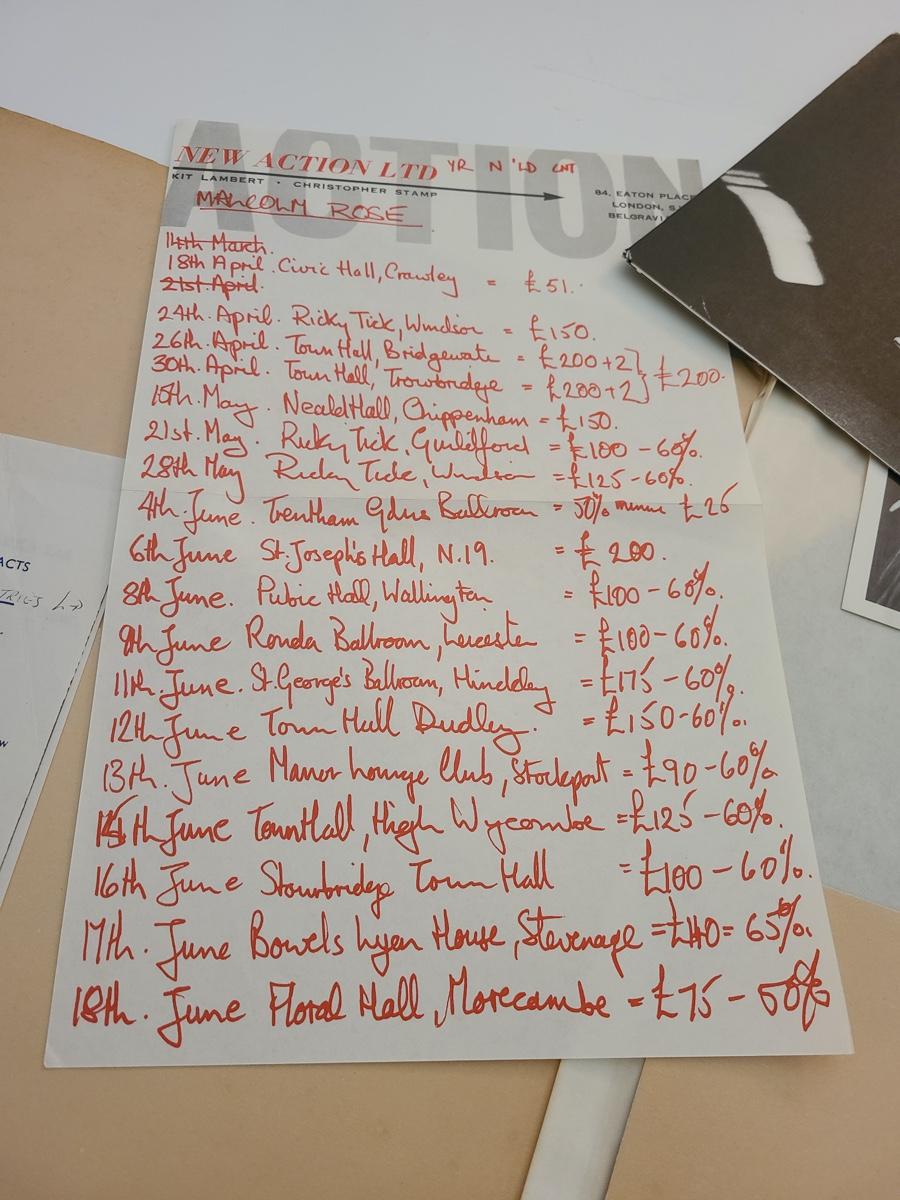 ACTION
NEW ACTION LTD YR N 'LD CNT
KIT LAMBERT · CHRISTOPHER STAMP
84, EATON PLACE
LONDON, S.
BELGRAVI
MALCOLM ROSE
14th March.
18th April. Civic Hall, Crawley = £51.
21st April.
24th. April. Ricky Tick, Windsor = £150.
26th. April. Town Hall, Bridgewate = £200+2] } £200.
30th. April. Town Hall, Trowbridge = £200+2]
15th. May. Neald Hall, Chippenham = £150.
21st. May. Ricky Tick, Guildford = £100 - 60%.
28th May Ricky Tick, Windsor = £125 - 60%.
4th. June. Trentham Gdns Ballroom = 50% minus £25
6th June St. Joseph's Hall, N.19. = £200.
8th June. Pubic Hall, Wallington = £100 - 60%.
9th June Ronda Ballroom, Leicester = £100 - 60%.
11th. June. St. George's Ballroom, Hinckley = £175 - 60%.
12th June Town Hall Dudley. = £150 - 60%.
13th. June Manor Lounge Club, Stockport = £90 - 60%
th June Town Hall, High Wycombe = £125 - 60%.
16th June Stourbridge Town Hall = £100 - 60%.
17th. June Bowels Lyen House, Stevenage = £140 = 65%.
18th. June Floral Hall, Morecambe = £75 - 50%
ACTS
TRIES